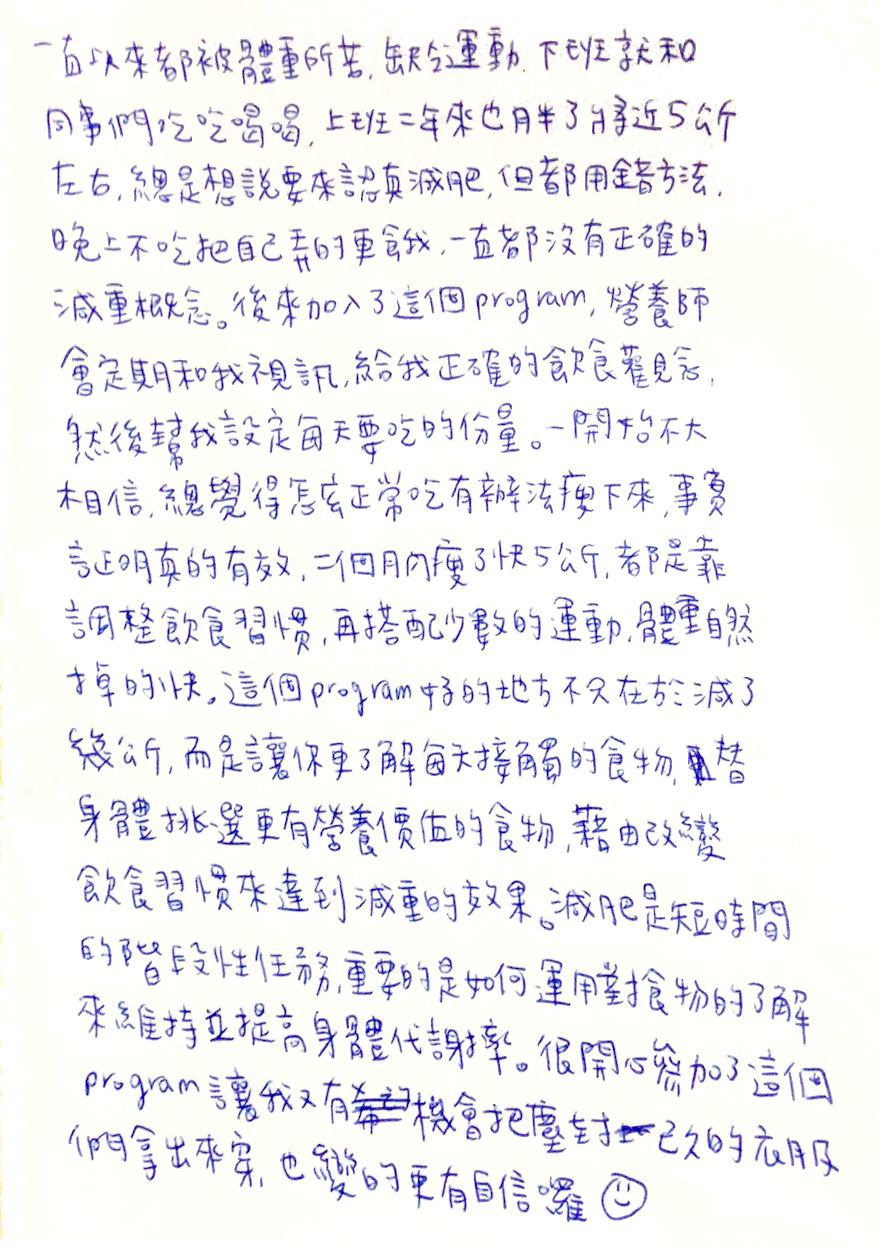 一直以來都被體重所苦,缺乏運動.下班就和
同事們吃吃喝喝,上班二年來也胖了將近5公斤
左右,總是想說要來認真減肥,但都用錯方法,
晚上不吃把自己弄的更餓,一直都沒有正確的
減重概念。後來加入了這個program,營養師
會定期和我視訊,給我正確的飲食觀念,
然後幫我設定每天要吃的份量。一開始不大
相信,總覺得怎麼正常吃有辦法瘦下來,事實
証明真的有效,二個月內瘦了快5公斤,都是靠
調整飲食習慣,再搭配少數的運動,體重自然
掉的快。這個program好的地方不只在於減了
幾公斤,而是讓你更了解每天接觸的食物,替
身體挑選更有營養價值的食物,藉由改變
飲食習慣來達到減重的效果。減肥是短時間
的階段性任務,重要的是如何運用對食物的了解
來維持並提高身體代謝率。很開心參加了這個
program讓我又有機會把塵封已久的衣服
們拿出來穿,也變的更有自信囉